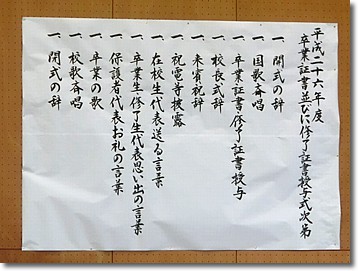 平成二十六年度
卒業証書並びに修了証書授与式次第
一、開式の辞
一、国歌斉唱
一、卒業証書・修了証書授与
一、校長式辞
一、来賓祝辞
一、祝電等披露
一、在校生代表送る言葉
一、卒業生・修了生代表思い出の言葉
一、保護者代表お礼の言葉
一、卒業の歌
一、校歌斉唱
一、閉式の辞